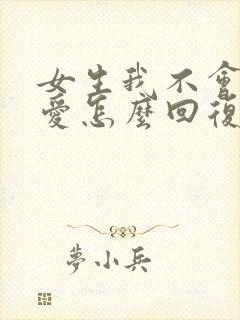 女生我不會
愛怎麼回復
夢小兵